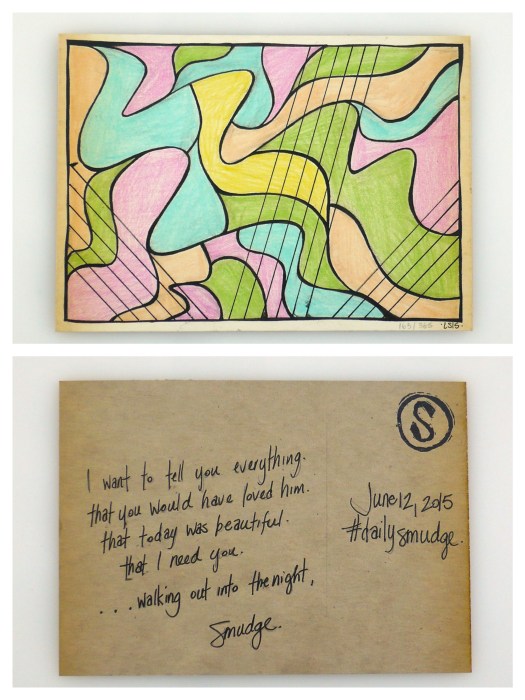 163/365 ·LSIS·
S
I want to tell you everything.
that you would have loved him.
that today was beautiful.
that I need you.
. . . walking out into the night,
Smudge.
June 12, 2015
#dailysmudge.